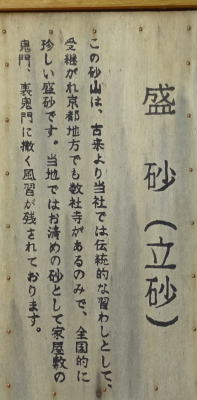 盛砂(立砂)
この砂山は、古来より当社では伝統的な習わしとして、
受継がれ京都地方でも数社寺があるのみで、全国的に
珍しい盛砂です。当地ではお清めの砂として家屋敷の
鬼門、裏鬼門に撒く風習が残されております。